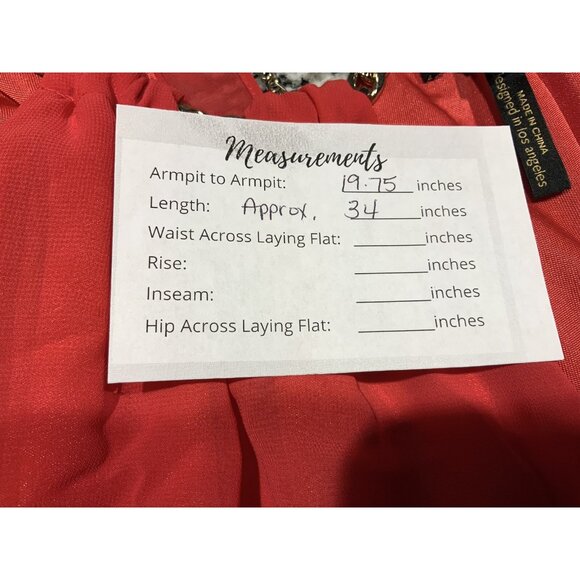 Measurements
Armpit to Armpit: 19.75 inches
Length: Approx. 34 inches
Waist Across Laying Flat: ________inches
Rise: ________inches
Inseam: ________inches
Hip Across Laying Flat: ________inches
MADE IN CHINA
designed in los angeles